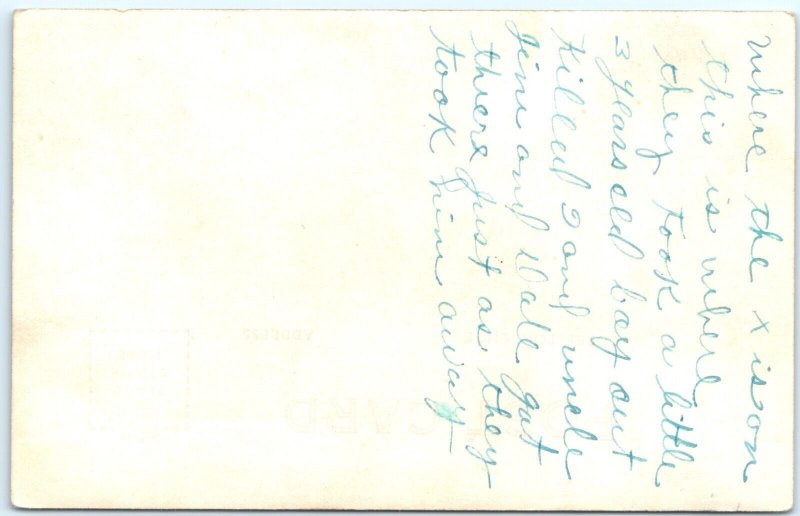 where the x is on
this is where
they took a little
3 years old boy out
Killed I and uncle
Jim and Dale got
there just as they
took him away
ADDRESS
CARD